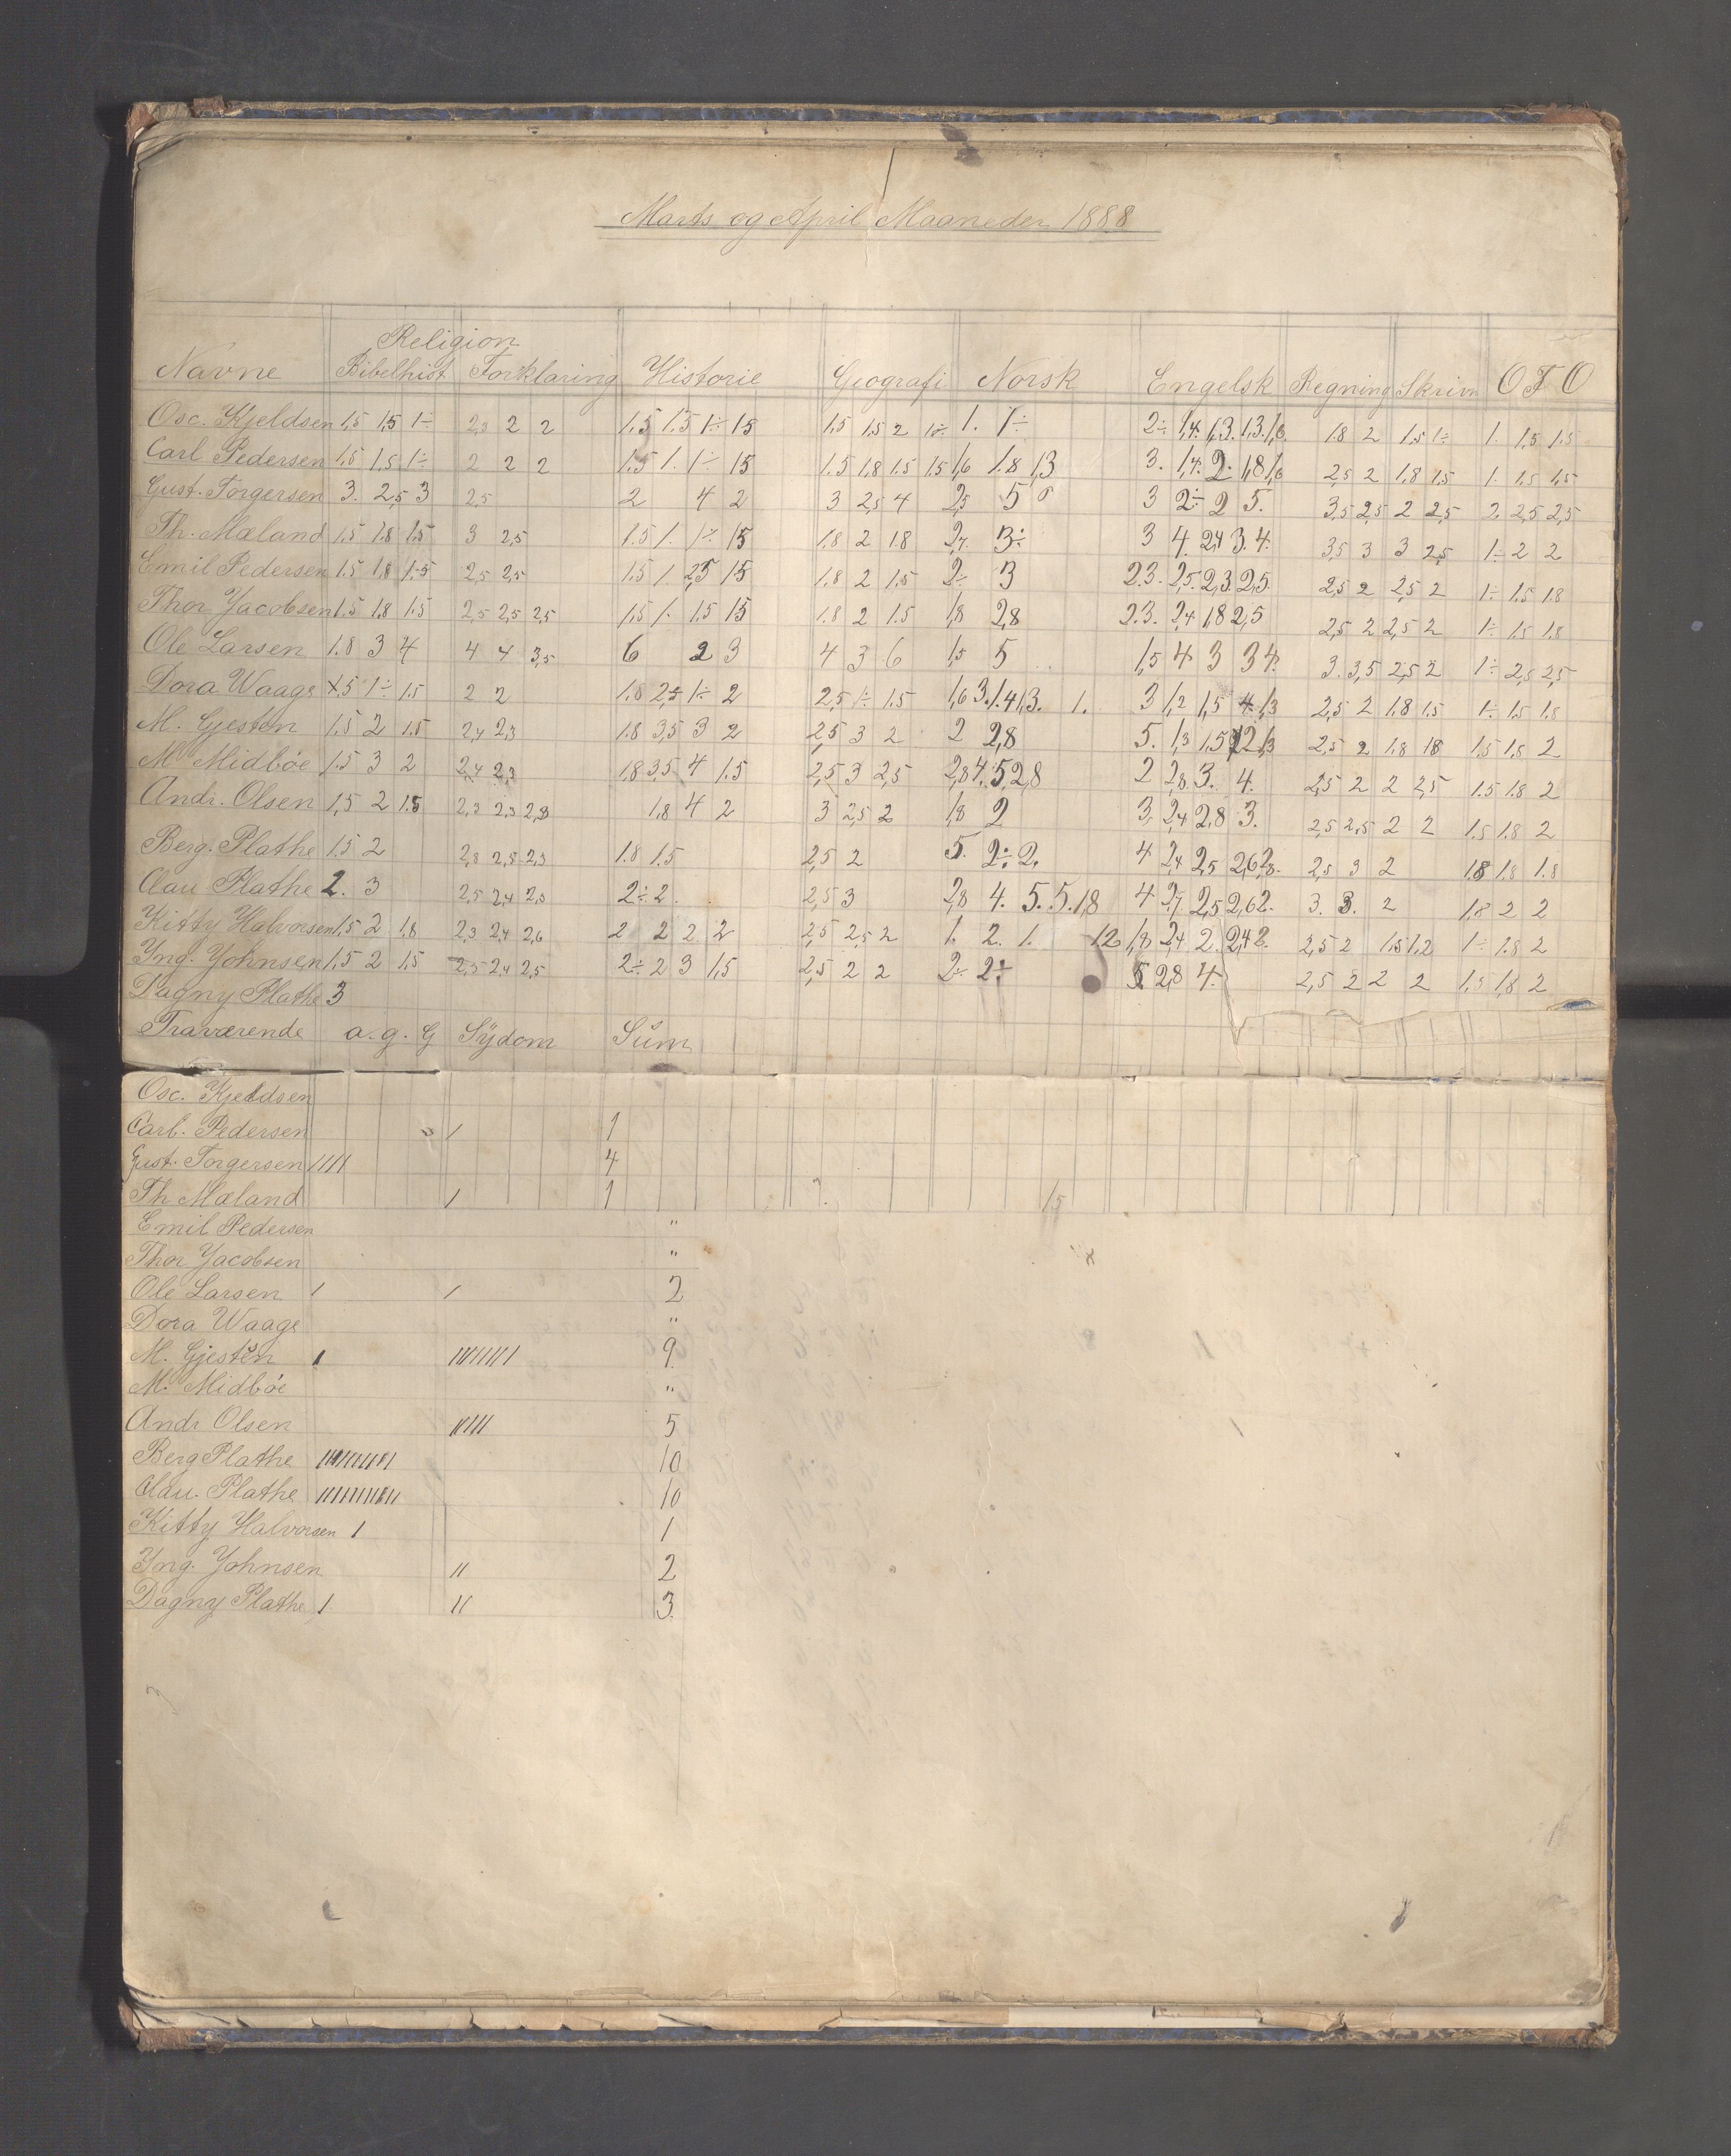 Marts og April Maaneder 1888
Religion
Navne Bibelhist Forklaring Historie Geografi Norsk Engelsk Regning Skrivn O F O
Osc. Kjeldsen 1,5 1,5 1÷ 2,3 2 2 1.5 1.5 1÷ 1.5 1.5 1.5 2 1. 1÷ 2÷ 1,4. 1,3. 1,3. 1,6. 1.8 2 1.5 1÷ 1. 1,5 1.5
Carl Pedersen 1,5 1,5 1÷ 2 2 2 1.5 1. 1÷ 15 1.5 1.8 1.5 15 1,6 1.8 1,3 3. 1,4. 2. 1,8 1,6 2,5 2 1.8 1,5 1. 1,5 1,5
Gust. Torgersen 3. 2,5 3 2,5 2 4 2 3 2,5 4 2,5 5 3 2÷ 2 5. 3,5 2,5 2 2,5 2. 2,5 2,5
Th. Mæland 1.5 1.8 1.5 3 2,5 1.5 1. 1÷ 15 1.8 2 1.8 2,7. 3÷ 3 4. 2,4 3. 4. 3,5 3 3 2,5 1÷ 2 2
Emil Pedersen 1.5 1,8 1.5 2,5 2,5 1.5 1 2,5 15 1.8 2 1.5 2÷ 3 2.3. 2,5. 2,3. 2,5. 2,5 2 2,5 2 1÷ 1.5 1.8
Thor Yacobsen 1.5 1,8 1.5 2,5 2,5 2,5 1,5 1. 1.5 15 1.8 2 1.5 1,8 2,8 2.3. 2,4 1,8 2,5 2,5 2 2,5 2 1÷ 1.5 1.8
Ole Larsen 1.8 3 4 4 4 3,5 6 2 3 4 3 6 1,5 5 1,5 4 3 3 4. 3. 3,5 2,5 2 1÷ 2,5 2,5
Dora Waage 1.5 1÷ 1.5 2 2 1.8 2,5 1÷ 2 2,5 1÷ 1.5 1,6 3. 1.4 1,3. 1. 3 1,2 1,5 4. 1,3 2,5 2 1.8 1.5 1÷ 1.5 1.8
M. Gjesten 1,5 2 1.5 2,4 2,3 1.8 3,5 3 2 2,5 3 2 2 2,8 5. 1,3 1,5 2 1,3 2,5 2 1.8 18 1.5 1.8 2
M. Midbøe 1.5 3 2 2,4 2,3 1,8 3,5 4 1.5 2,5 3 2,5 2,8 4. 5. 2,8 2 2,8 3. 4. 2,5 2 2 2,5 1.5 1.8 2
Andr. Olsen 1,5 2 1.5 2,3 2,3 2,3 1,8 4 2 3 2,5 2 1,8 2 3. 2,4 2,8 3. 2,5 2,5 2 2 1.5 1.8 2
Berg. Plathe 1.5 2 2,8 2,5 2,3 1.8 1.5 2,5 2 5. 2÷ 2. 4 2,4 2,5 2,6 2,8. 2,5 3 2 1.8 1.8 1.8
Clau. Plathe 2. 3 2,5 2,4 2,3 2÷ 2. 2,5 3 2,8 4. 5. 5. 1,8 4 2,7. 2,5 2,6 2. 3. 3. 2 1,8 2 2
Kitty Halvorsen 1.5 2 1.8 2,3 2,4 2,6 2 2 2 2 2,5 2,5 2 1. 2. 1. 1.2 1,8 2,4 2. 2,4 2. 2,5 2 1.5 1,2 1÷ 1.8 2
Yng. Yohnsen 1,5 2 1,5 2,5 2,4 2,5 2÷ 2 3 1,5 2,5 2 2 2÷ 2÷ 5. 2,8 4. 2,5 2 2 2 1,5 1,8 2
Dagny Plathe 3
Fraværende a. g. G Sÿdom Sŭm
Osc. Kjeldsen
Carl. Pedersen / 1
Gust. Torgersen //// 4
Th Mæland / 1
1.5
Emil Pedersen "
Thor Yacobsen "
Ole Larsen / / 2
Dora Waage "
M. Gjesten / //////// 9
M. Midbøe "
Andr Olsen ///// 5
Berg Plathe ////////// 10
Clau. Plathe ////////// 10
Kitty Halvorsen / 1
Yng. Yohnsen // 2
Dagny Plathe / // 3.